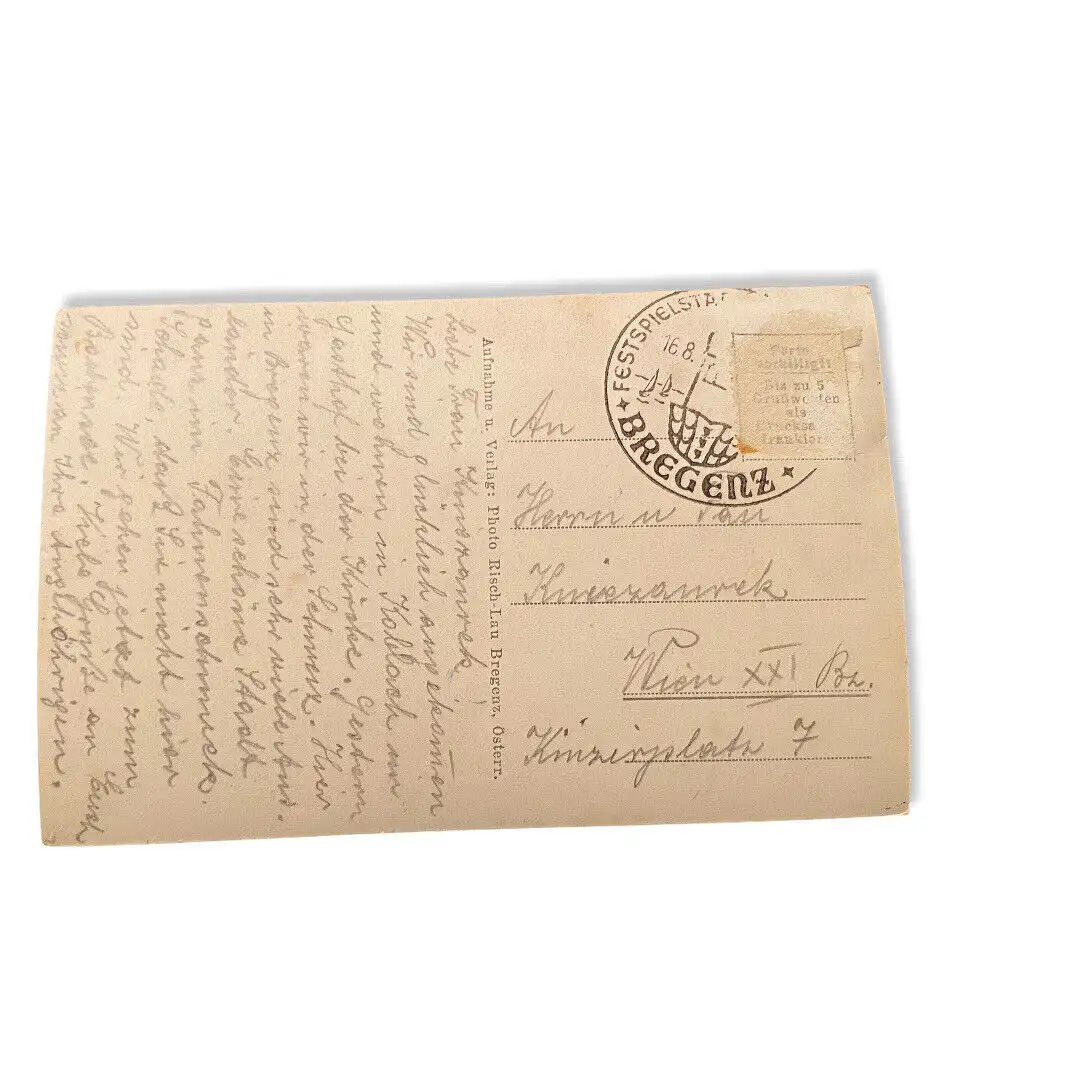 Liebe Frau Kniezanrek,
Wir sind glücklich angekommen
und wohnen in Koblach im
Gasthof bei der Kirche. Gestern
waren wir in der Schweiz. Hier
in Bregenz sind sehr viele Aus-
länder. Eine schöne Stadt
ganz im Fahnenschmuck.
Schade, dass Sie nicht hier
sind. Wir gehen jetzt zum
Bodensee. Liebe Grüße an Euch
und an Ihre Angehörigen.
Aufnahme u. Verlag: Photo Risch-Lau Bregenz, Österr.
FESTSPIELSTA
16.8.
BREGENZ
Bis zu 5
Grußworten
als
An
Herrn u
Kniezanrek
Wien XXI Bz.
Kinzerplatz 7